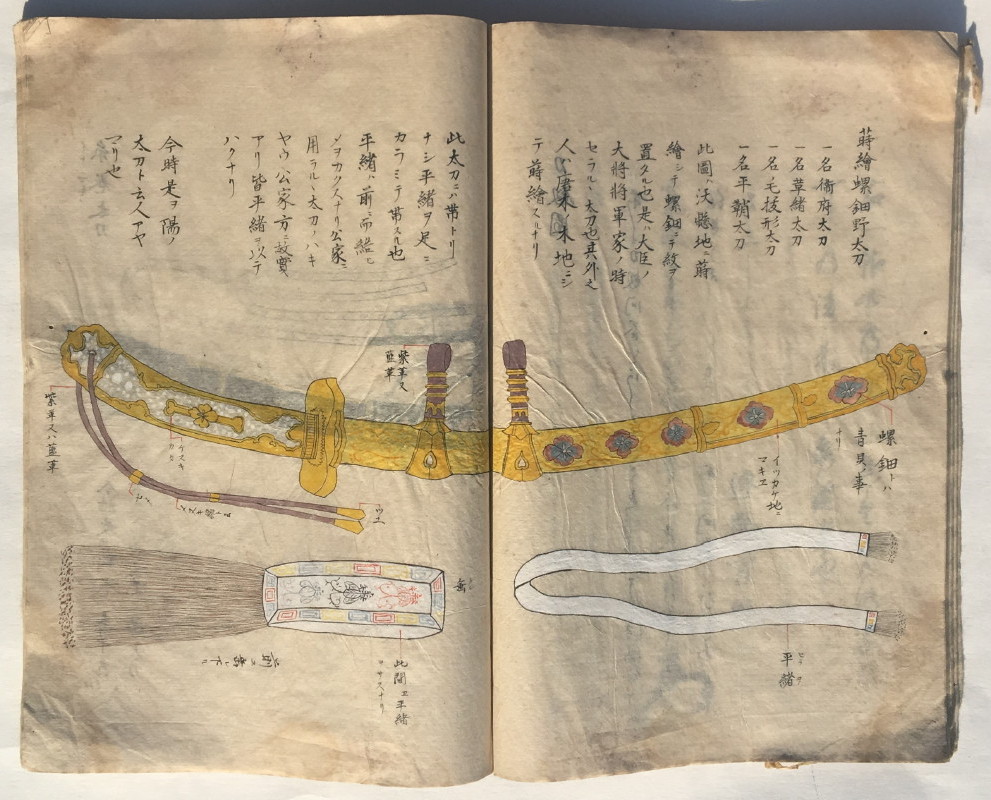 蒔繪螺鈿野太刀
一名衞府太刀
一名革緒太刀
一名毛抜形太刀
一名平鞘太刀
此圖ハ沃懸地ニ蒔
繪シテ螺鈿ニテ紋ヲ
置タル也是ハ大臣ノ
大將將軍家ノ時
セラルヽ太刀也其外之
人ハ唐木ノ木地ニシ
テ蒔繪スルナリ
螺鈿トハ
青貝ノ事
ナリ
イツカケ地ニ
マキヱ
平緒
ヒラヲ
此太刀ニハ帯トリ
ナシ平緒ヲ足ニ
カラミテ帯スル也
平緒ハ前ニ而結ヒ
メヲカクスナリ公家ニ
用ラルヽ太刀ノハキ
ヤウ公家方ニ故實
アリ皆平緒ヲ以テ
ハクナリ
今時是ヲ陽ノ
太刀ト云人アヤ
マリ也
紫革又
藍革
紫革又ハ藍革
此間ヱ平緒
ヲサスナリ